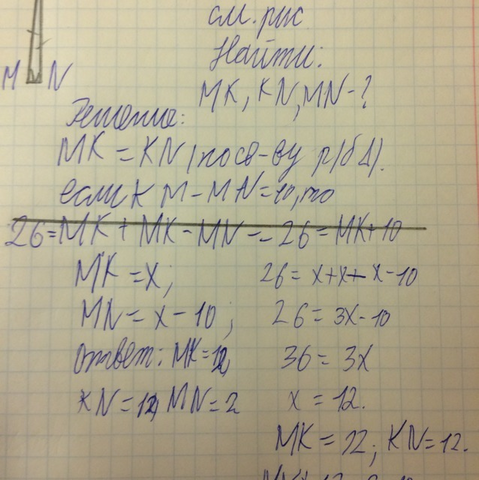 см. рис
Найти:
M N
MK, KN, MN - ?
Решение:
MK = KN (по св-ву р/б Δ).
если KM - MN = 10, то
26 = MK + MK - MN - 26 = MK + 10
MK = x;
MN = x - 10;
Ответ: MK = 12,
KN = 12, MN = 2
26 = x + x + x - 10
26 = 3x - 10
36 = 3x
x = 12.
MK = 12; KN = 12.